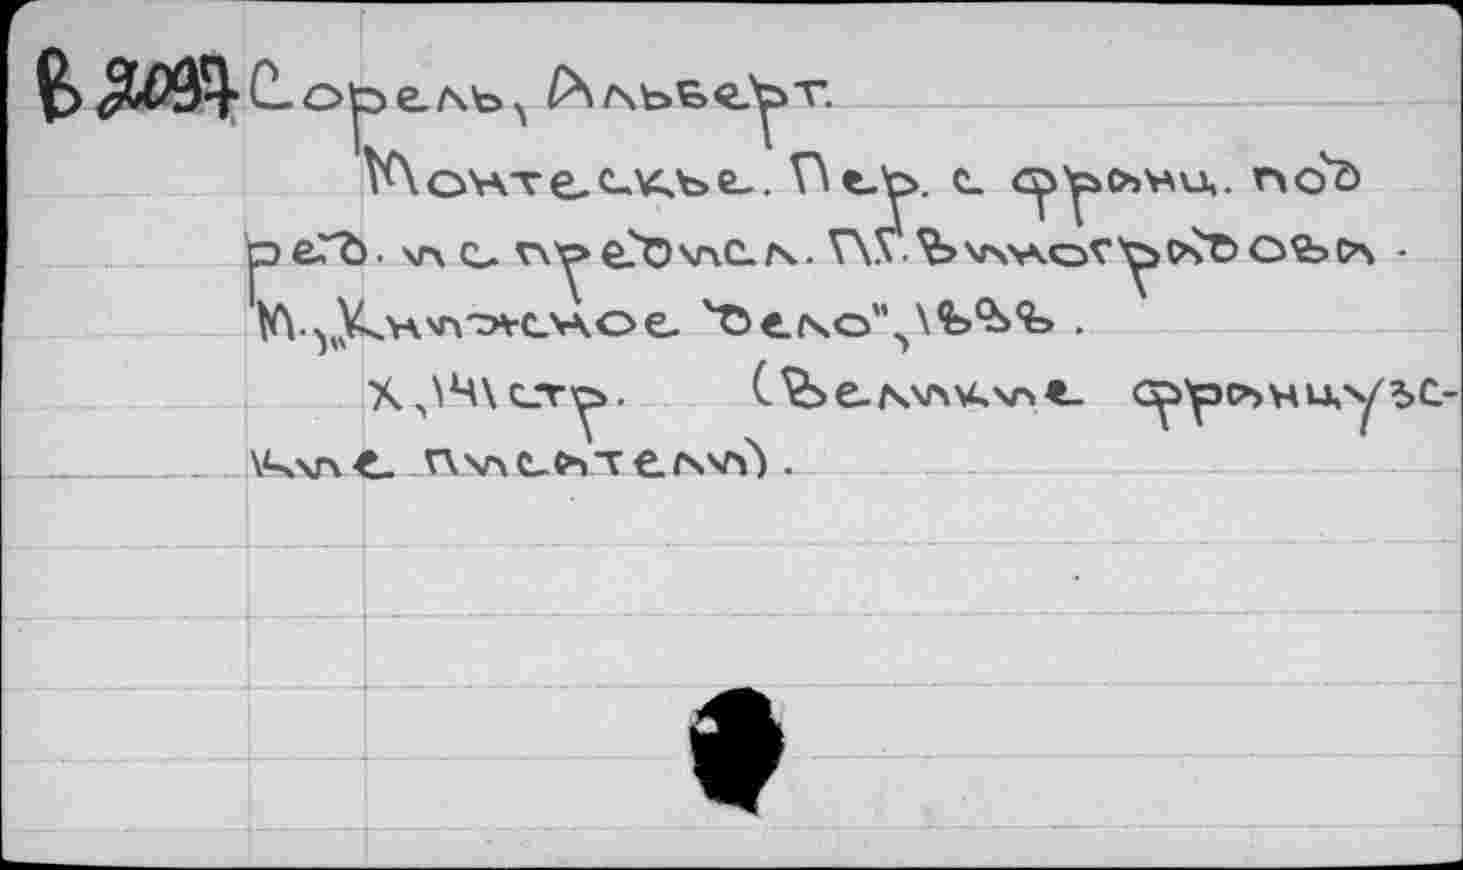 Сорель, Альберт.
Монтескье. Пер. с француз. под
ред. и с предисл. П.Г. Виноградова -
М., „Книжное дело", 1898.
X, 141 стр. (Великие французс-
кие писатели).